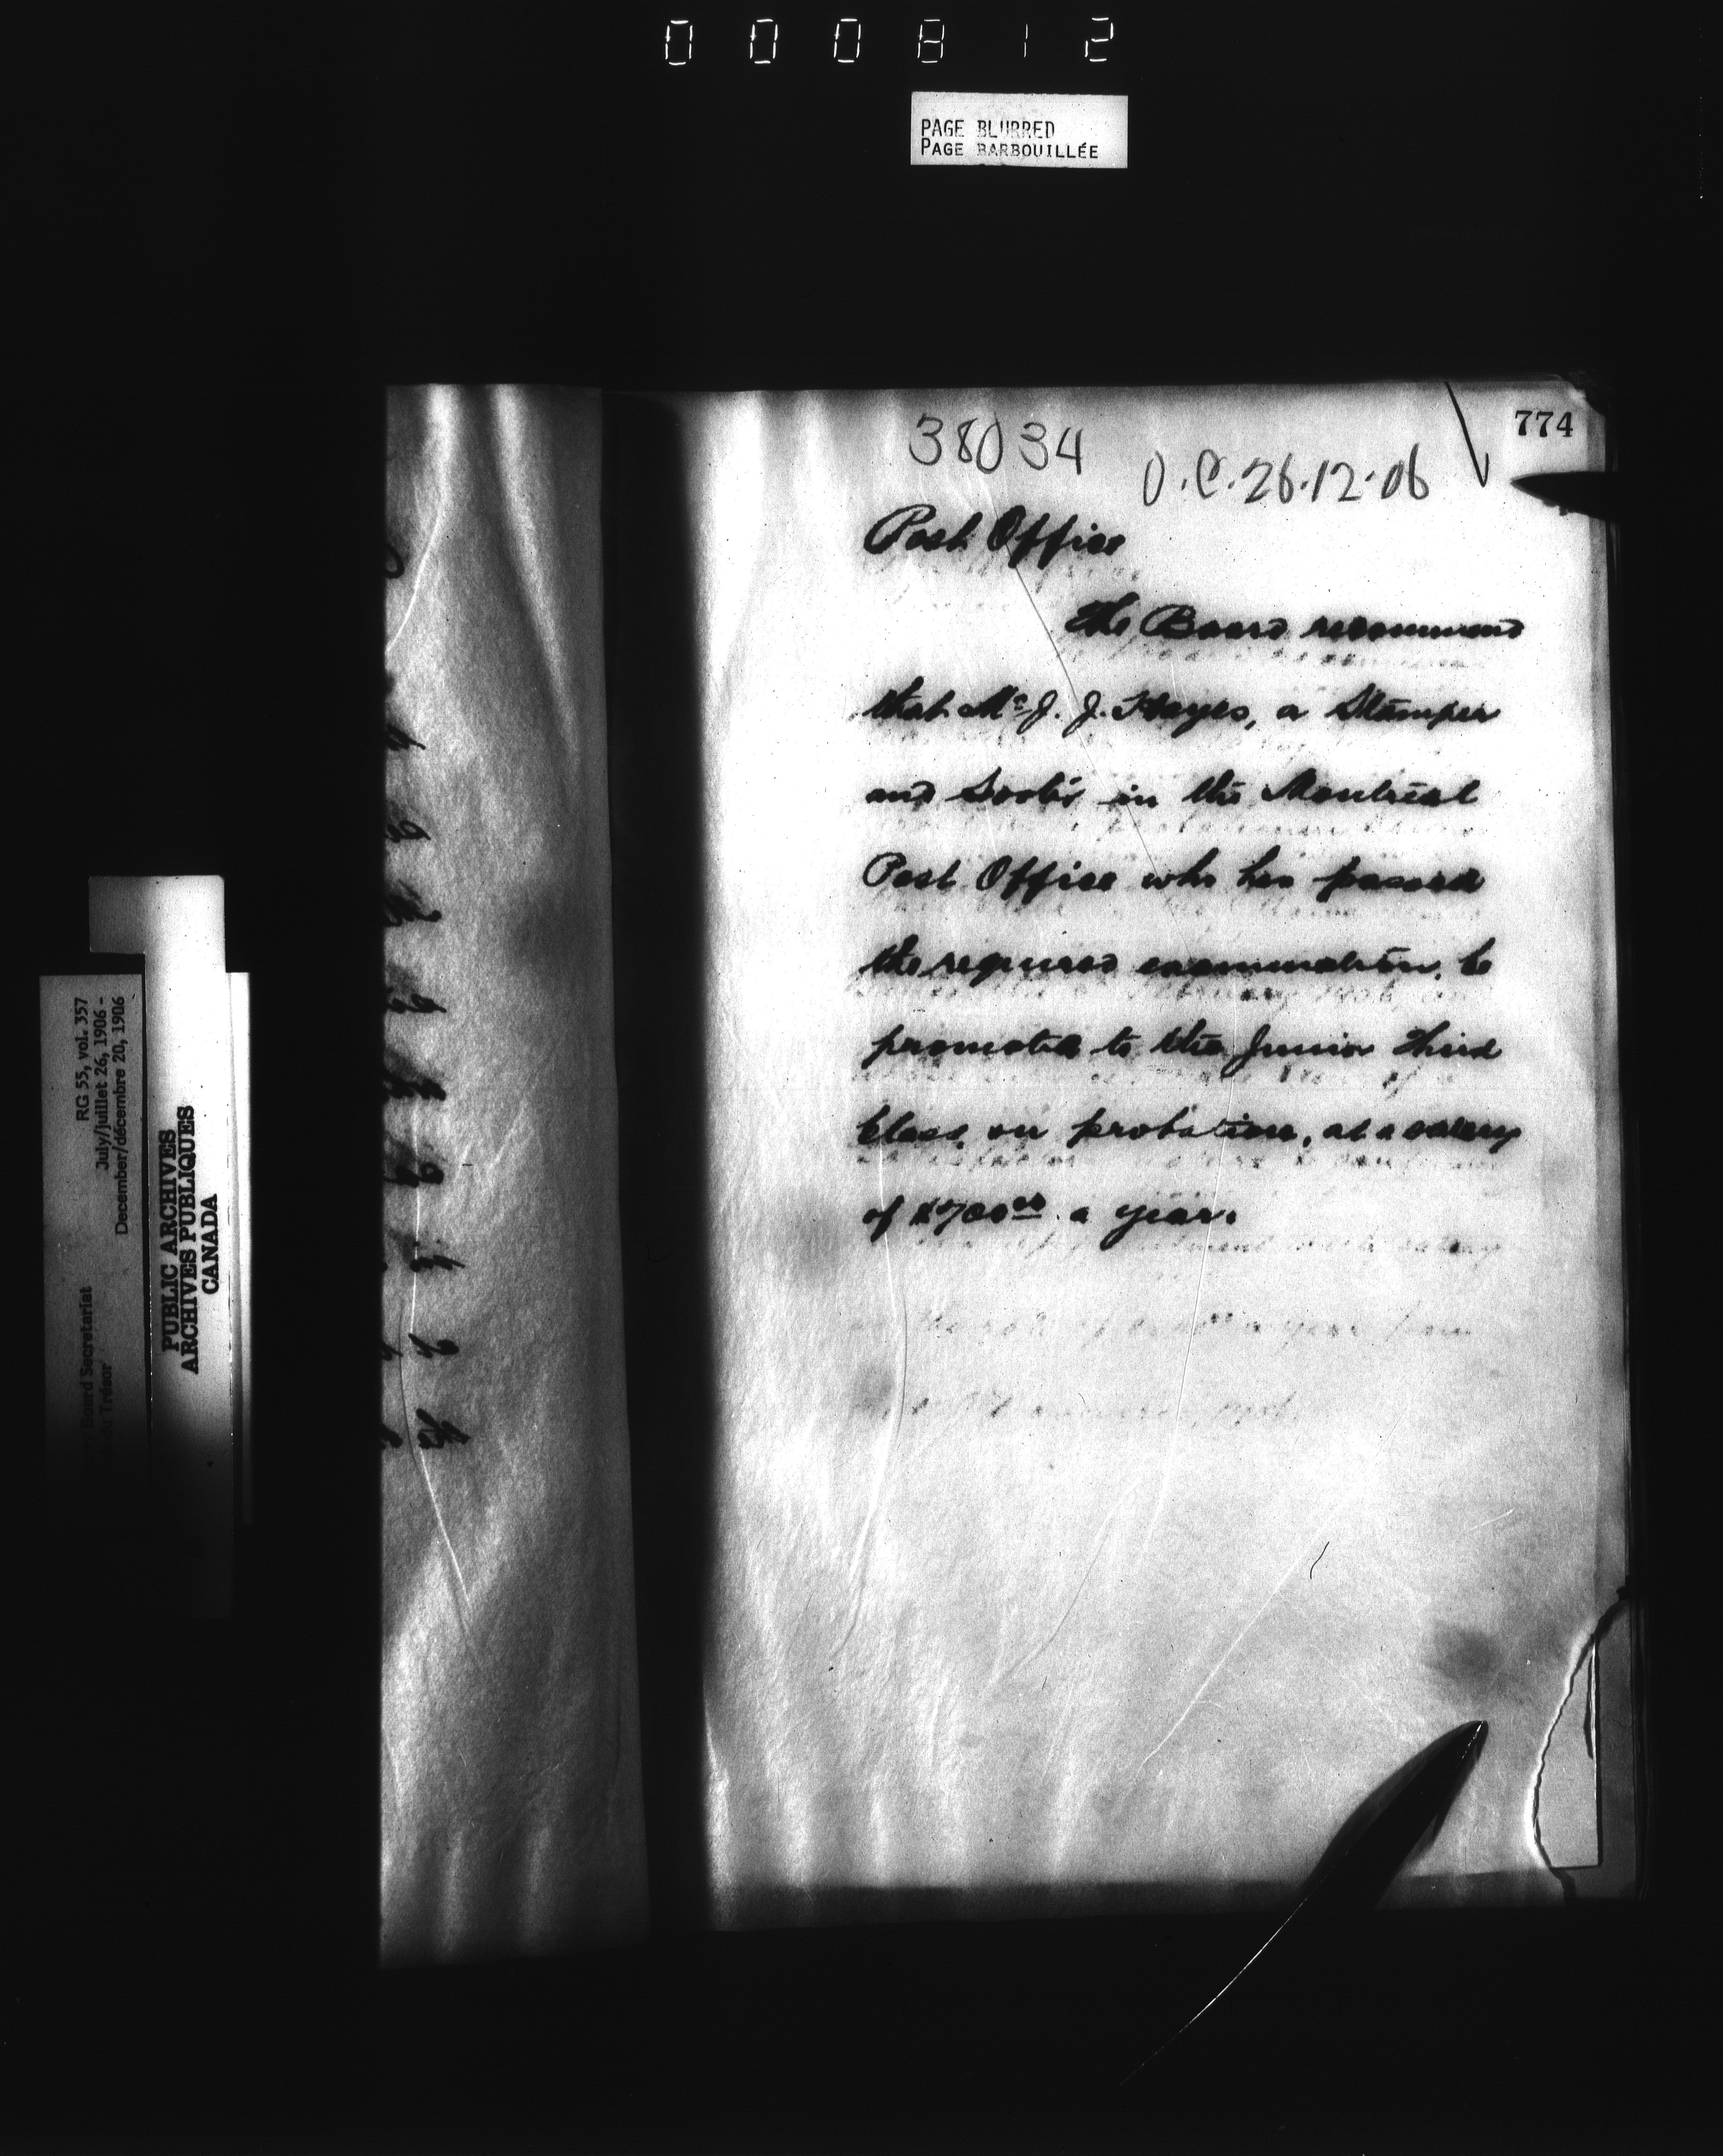 000812
PAGE BLURRED
PAGE BARBOUILLÉE
774
38034
O.C. 26.12.06
Post Office
The Board recommend
that Mr J. J. Hayes, a Stamper
and Sorter in the Montreal
Post Office who has passed
the required examination, be
promoted to the Junior Third
Class, on probation, at a salary
of $700.00 a year.
RG 55, vol. 357
July/juillet 26, 1906 -
December/décembre 20, 1906
Board Secretariat
Trésor
PUBLIC ARCHIVES
ARCHIVES PUBLIQUES
CANADA